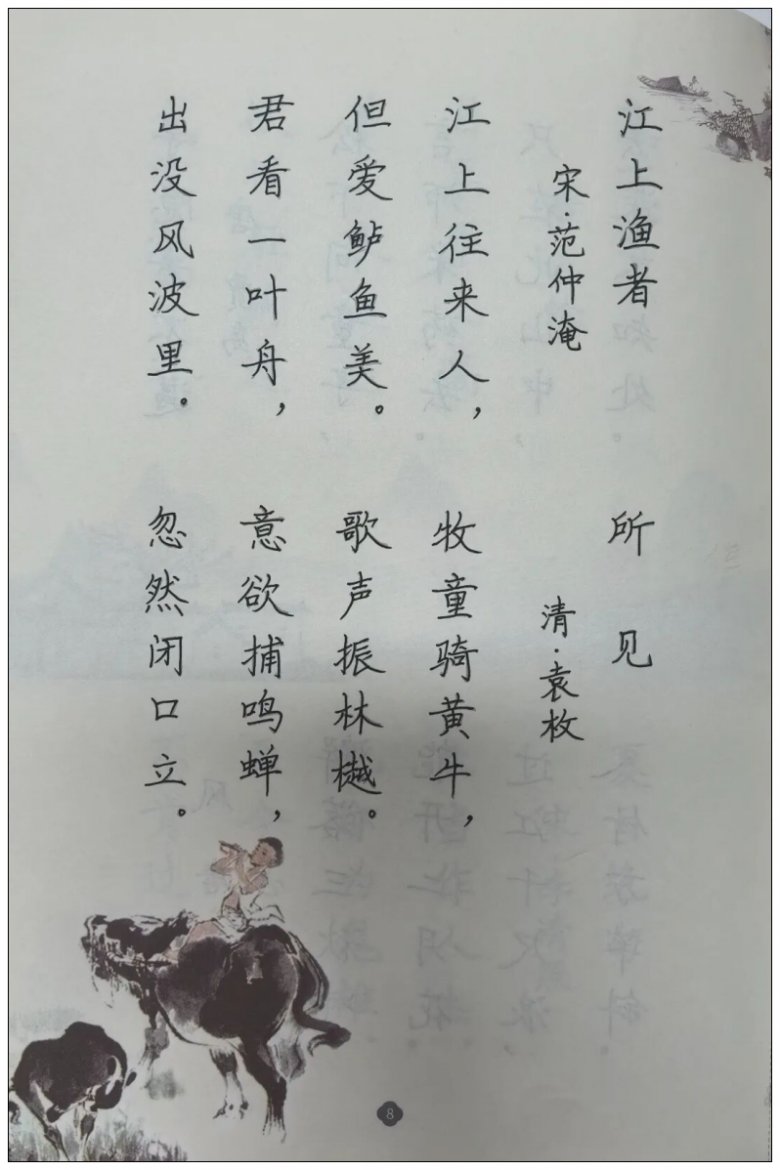 江上渔者
宋·范仲淹
江上往来人，
但爱鲈鱼美。
君看一叶舟，
出没风波里。
所见
清·袁枚
牧童骑黄牛，
歌声振林樾。
意欲捕鸣蝉，
忽然闭口立。
8